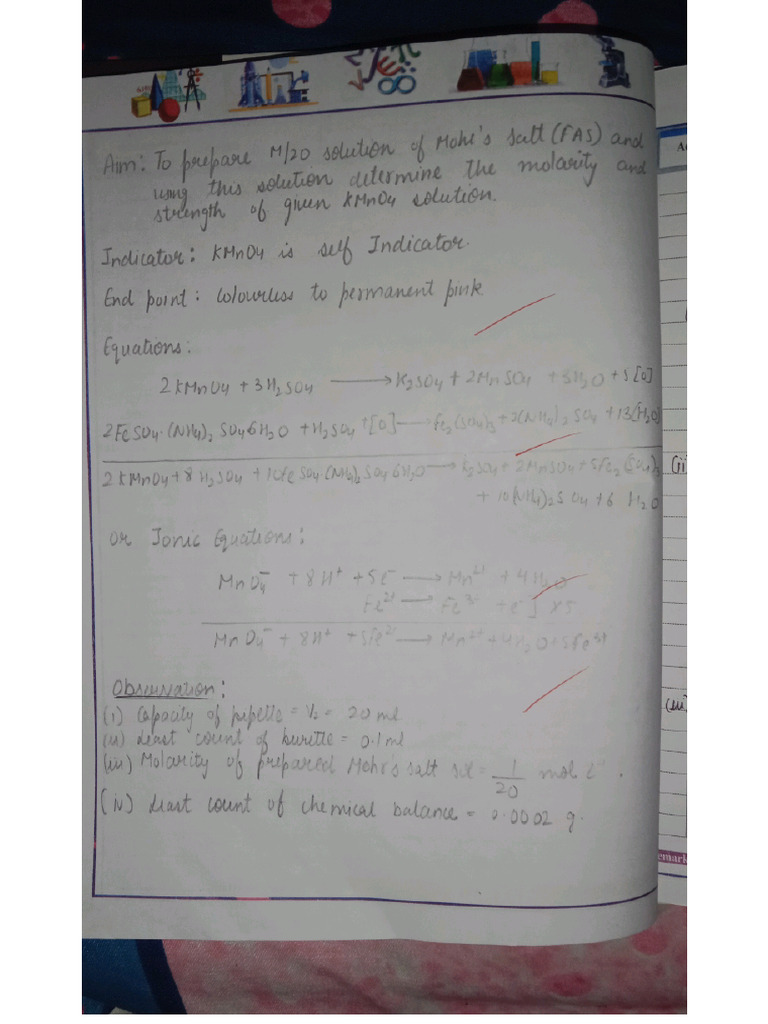 Aim: To prepare M/20 solution of Mohr's salt (FAS) and
using this solution determine the molarity and
strength of given KMnO4 solution.
Indicator: KMnO4 is self Indicator.
End point: Colourless to permanent pink
Equations:
2KMnO4 + 3H2SO4 ⟶ K2SO4 + 2MnSO4 + 3H2O + 5[O]
2FeSO4·(NH4)2SO46H2O + H2SO4 + [O] ⟶ Fe2(SO4)3 + 2(NH4)2SO4 + 13(H2O)
2KMnO4 + 8H2SO4 + 10FeSO4·(NH4)2SO46H2O ⟶ K2SO4 + 2MnSO4 + 5Fe2(SO4)3
+ 10(NH4)2SO4 + 6 H2O
or Ionic Equations:
MnO4⁻ + 8H⁺ + 5e⁻ ⟶ Mn²⁺ + 4H2O
Fe²⁺ ⟶ Fe³⁺ + e⁻] x5
MnO4⁻ + 8H⁺ + 5Fe²⁺ ⟶ Mn²⁺ + 4H2O + 5Fe³⁺
Observation:
(i) Capacity of pipette = = 20 ml
(ii) Least count of burette = 0.1 ml
(iii) Molarity of prepared Mohr's salt sol = 1/20 mol L⁻¹.
(iv) Least count of chemical balance = 0.0002 g.
(ii)
(iii)
emark